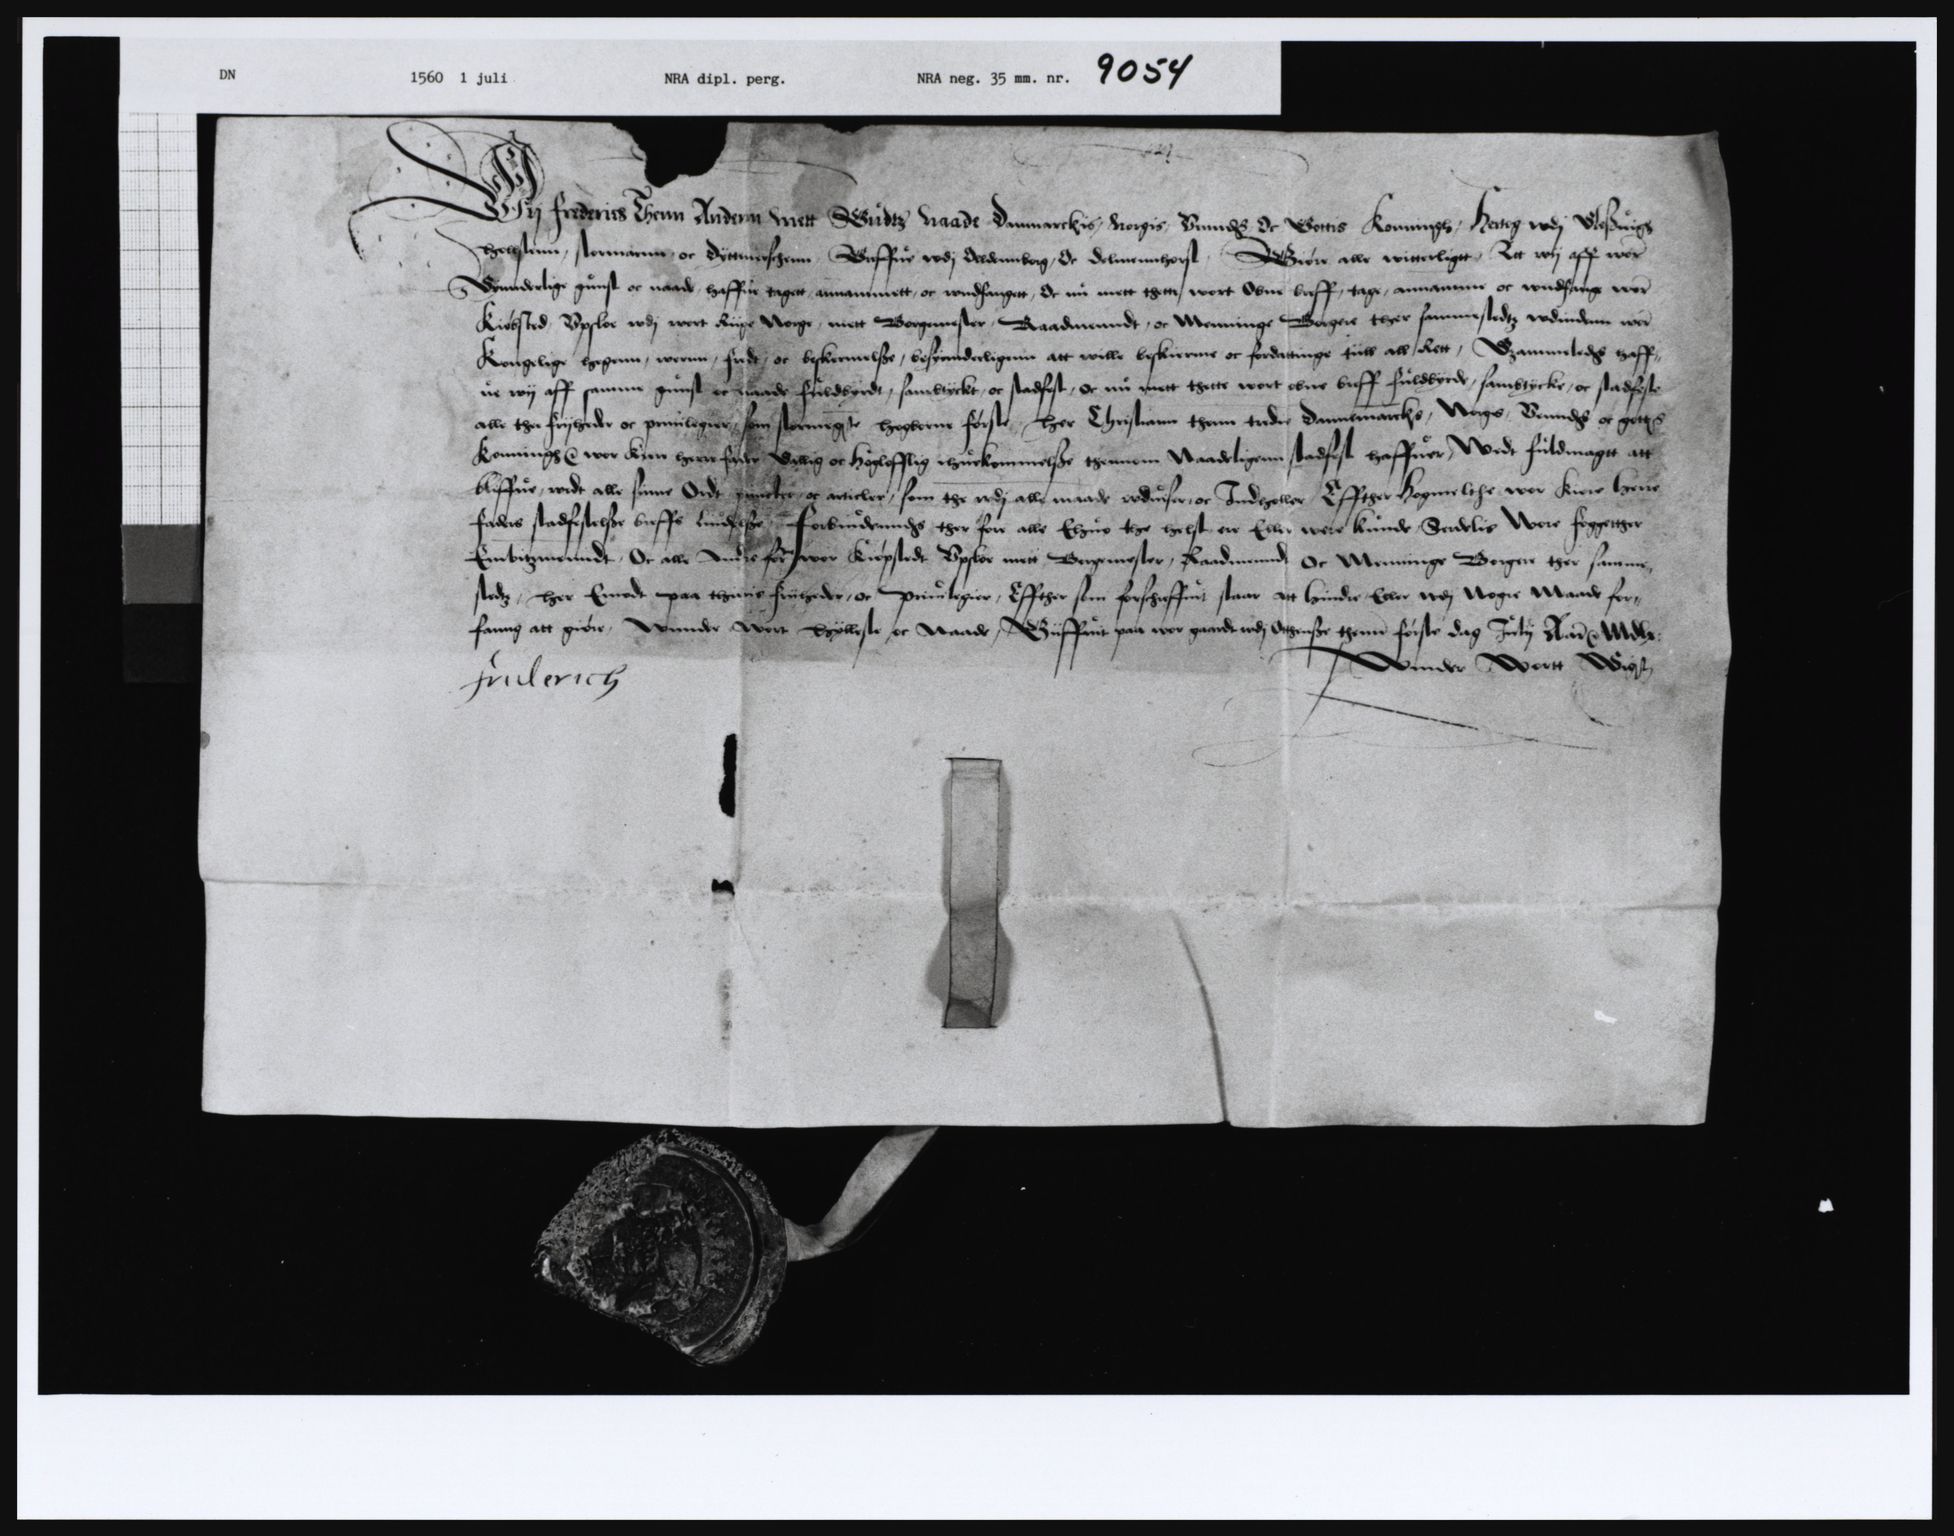 DN 1560 1 juli NRA dipl. perg. NRA neg. 35 mm. nr. 9054
Wij Frederich Thenn Andenn mett Gudtz Naade Danmarckis, Norgis, Venndis Oc Gottis Konningh, Hertig wdj Slesuigh
Holstenn, stormarnn, oc Dyttmerschenn, Greffue wdj Oldennborg, Oc Delmennhorst, Giøre alle witterligtt, Att wij aff wor
Synnderlige gunst oc naade, haffue tagett, annammett, oc wndfangett, Oc nu mett thette wort Obne breff, tage, annamme oc wndfange wor
Kiøbsted Vpsloe wdj wort Rige Norge, mett Borgemester, Raadmenndt, oc Menninge Borgere ther sammestedtz wdindenn wor
Kongelige hegenn, wernn, fridt, oc beskermelsse, besynnderligenn att wille beskierme oc fordattinge tiill all Rett, Sammeledis haff-
ue wij aff samme gunst oc naade fuldbyrdt, samtyckt, oc stadfest, Oc nu mett thette wort obne breff fuldbyrde, samtycke, oc stadfeste
alle the friiheder oc priuilegier, som stormegtiste høgborne første, Her Christiann thenn tredie Dannemarckis, Norgis, Venndis oc gottis
Konningh wor kere herre fader Salig oc Høglofflig ihukommelsse thennom Naadeligenn stadfest haffuer, Wedt fuldmagtt att
bliffue, widt alle sinne Ordt puncter, oc articler, som the wdj alle maade wduiser, oc Indeholler Effther Høgmelthe wor kiere herre
faders stadfestelsse breffs liudelsse, Forbiudenndis ther fore alle Ehuo the helst ere Eller were kunde Serdelis Wore foggetther
Embitzmenndt, Oc alle Andre for wor Kiøpstedt Vpsloe mett Borgemester, Raadmenndt Oc Menninge Borgere ther samme-
stedtz, Her Emodt paa theris friiheder, oc Priuilegier, Effther som forschreffuit staar att hindre Eller wdj Nogre Maade for-
fanng att giøre, Wnnder Wort hylleste oc Naade, Giiffuit paa wor gaardt wdj Othensse thenn første dag Julij Aar Mdlx.
Wnnder Wortt Signet
Friderich